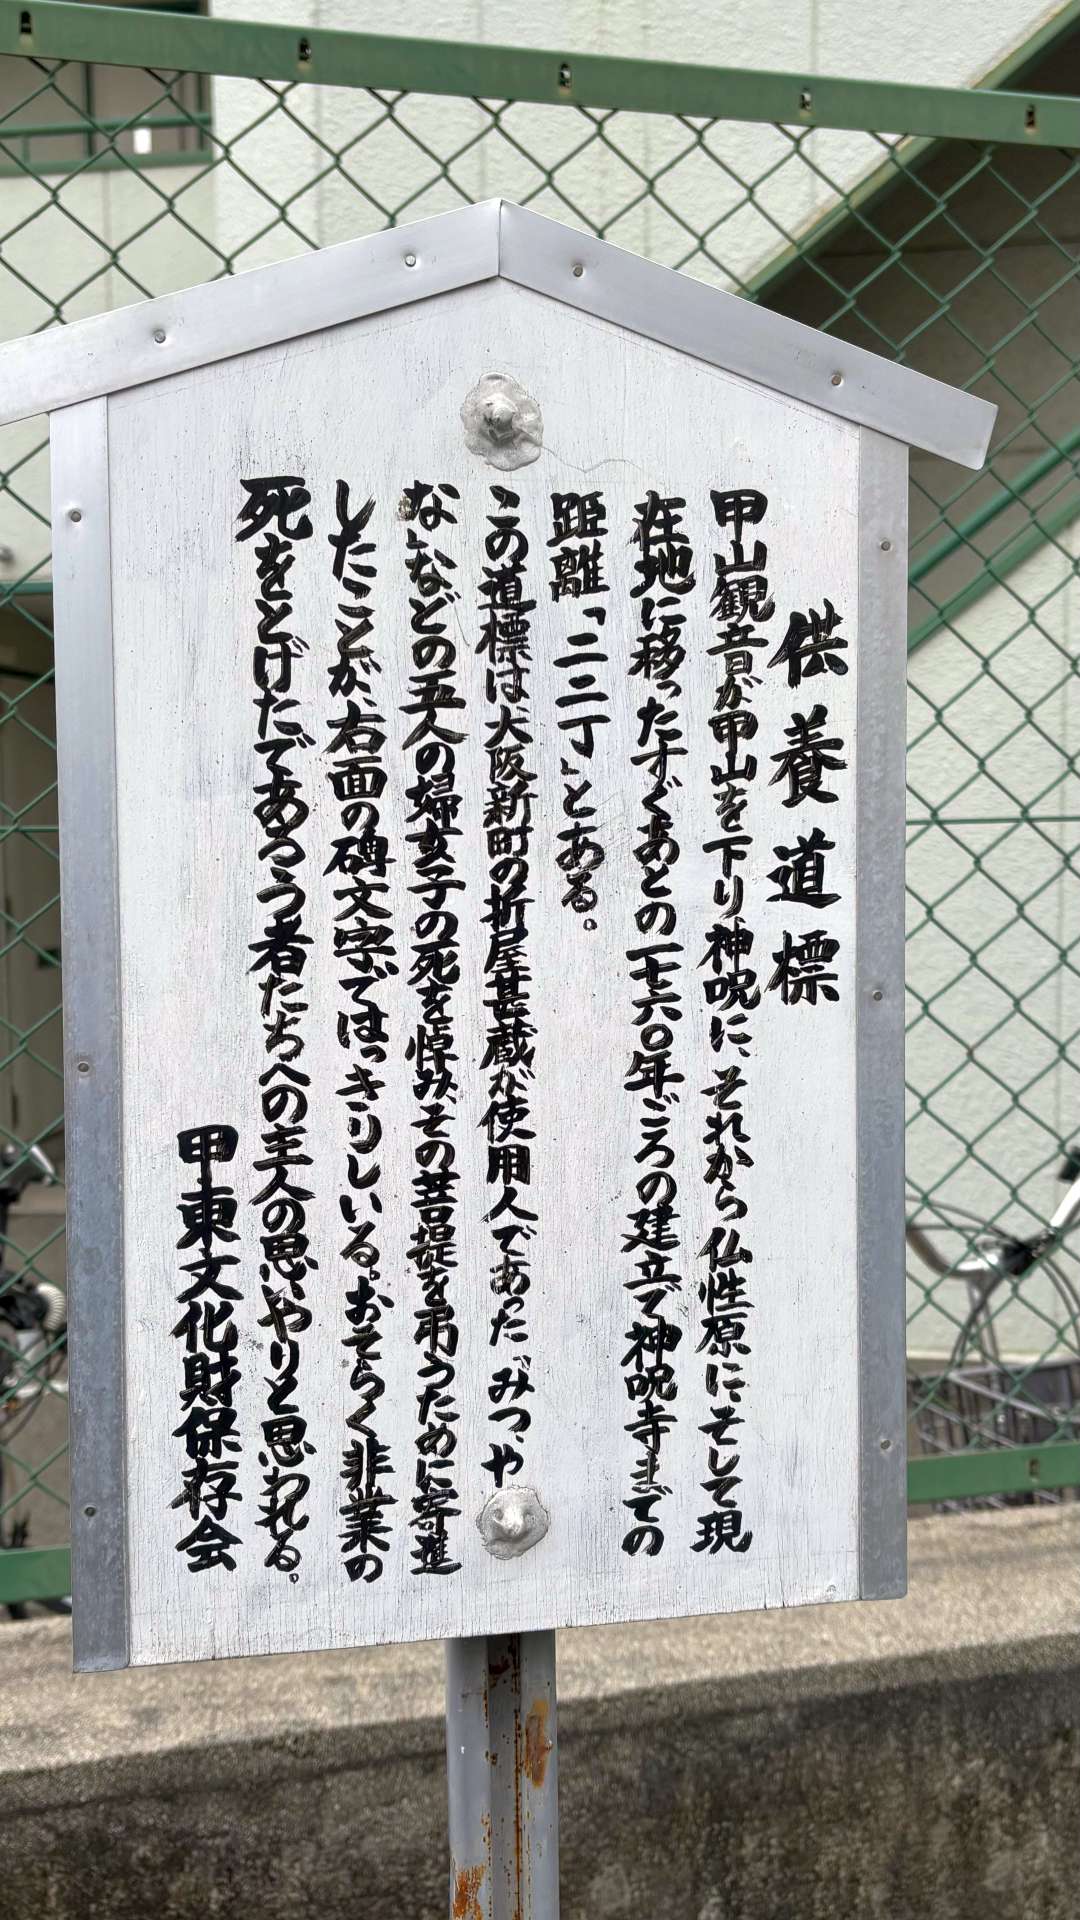 供養道標
甲山観音が甲山を下り神呪に、それから仏性原に、そして現
在地に移ったすぐあとの一七六〇年ごろの建立で神呪寺までの
距離「二二丁」とある。
この道標は、大阪新町の折屋甚蔵が使用人であった「みつ、や
な」などの五人の婦女子の死を悼み、その菩提を弔うために寄進
したことが、右面の碑文字ではっきりしいる。おそらく非業の
死をとげたであろう者たちへの主人の思いやりと思われる。
甲東文化財保存会